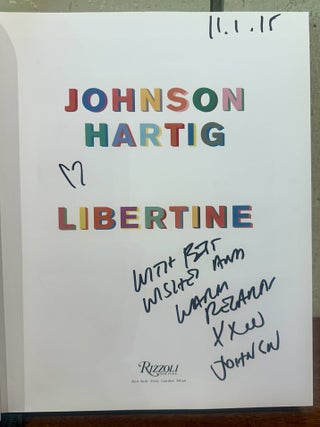 11.1.15
JOHNSON
HARTIG
LIBERTINE
WITH BEST
WISHES AND
WARM
REGARDS
JOHNSON
RIZZOLI
New York Paris London Milan